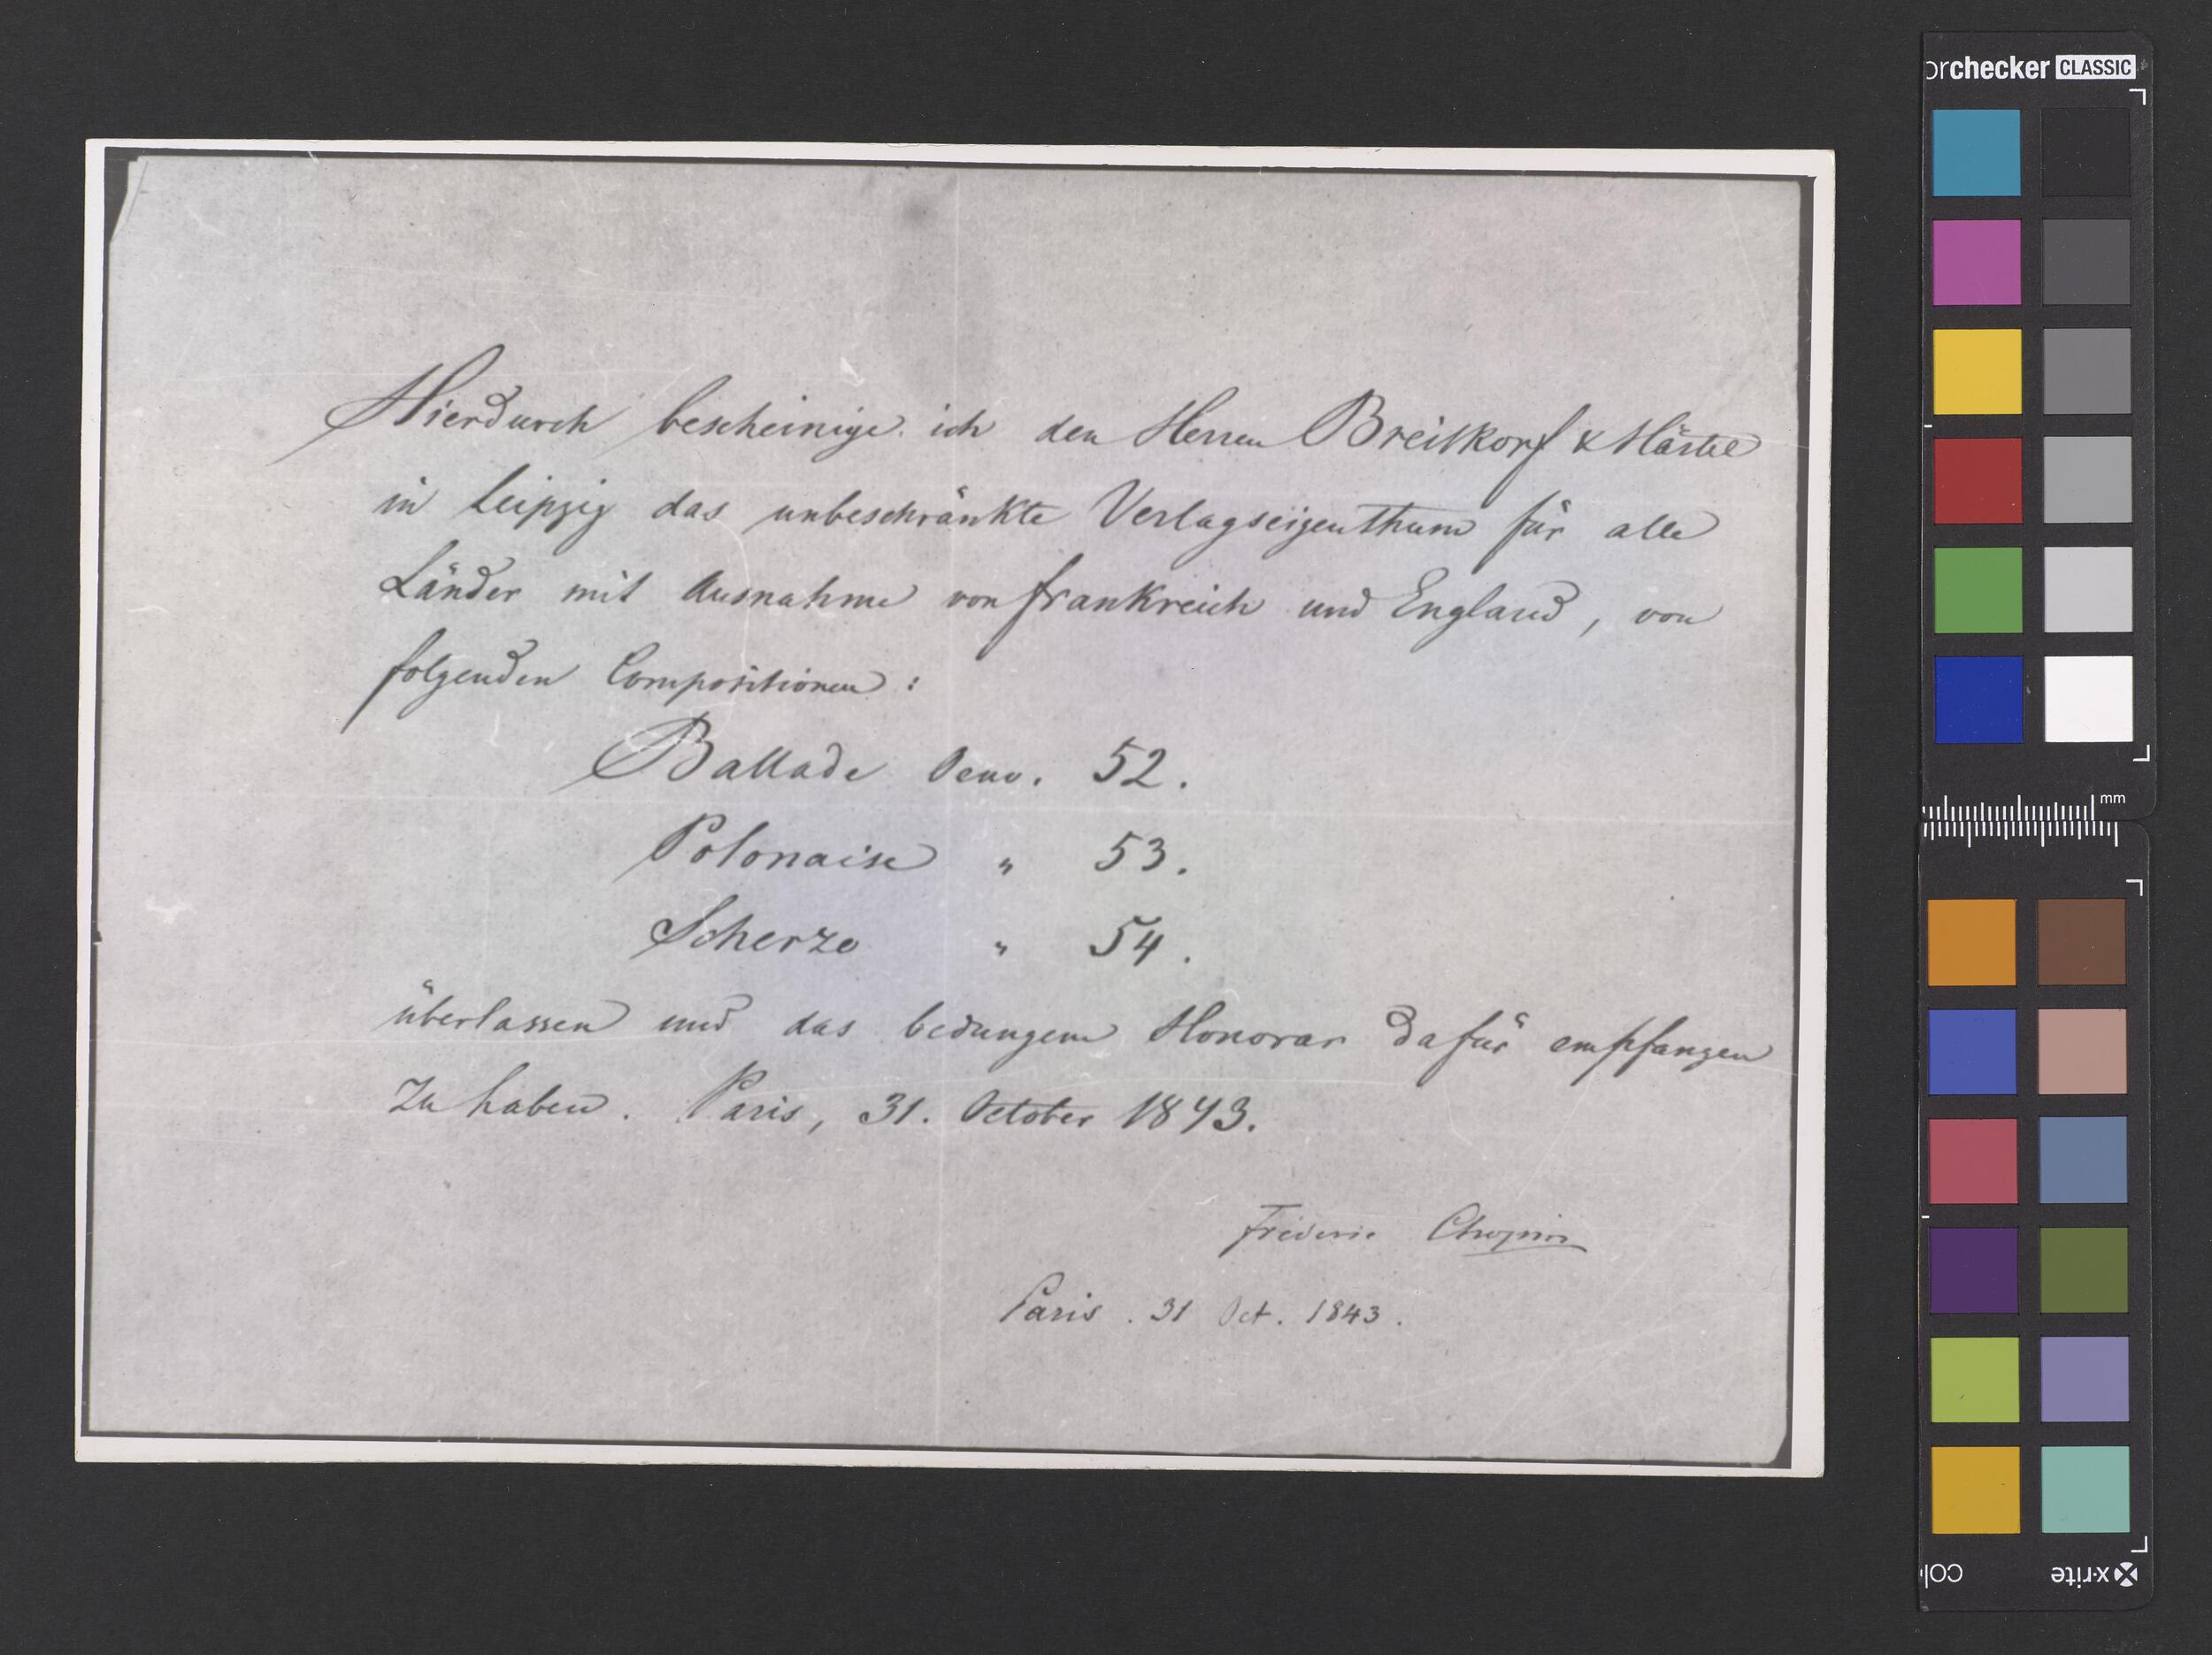 Hierdurch bescheinige ich den Herren Breitkopf & Härtel
in Leipzig das unbeschränkte Verlagseigenthum für alle
Länder mit Ausnahme von Frankreich und England, von
folgenden Compositionen:
Ballade Oeuv. 52.
Polonaise " 53.
Scherzo " 54.
überlassen und das bedungene Honorar dafür empfangen
zu haben. Paris, 31. October 1843.
Frédéric Chopin
Paris. 31 Oct. 1843.
orchecker CLASSIC
mm
x-rite
col